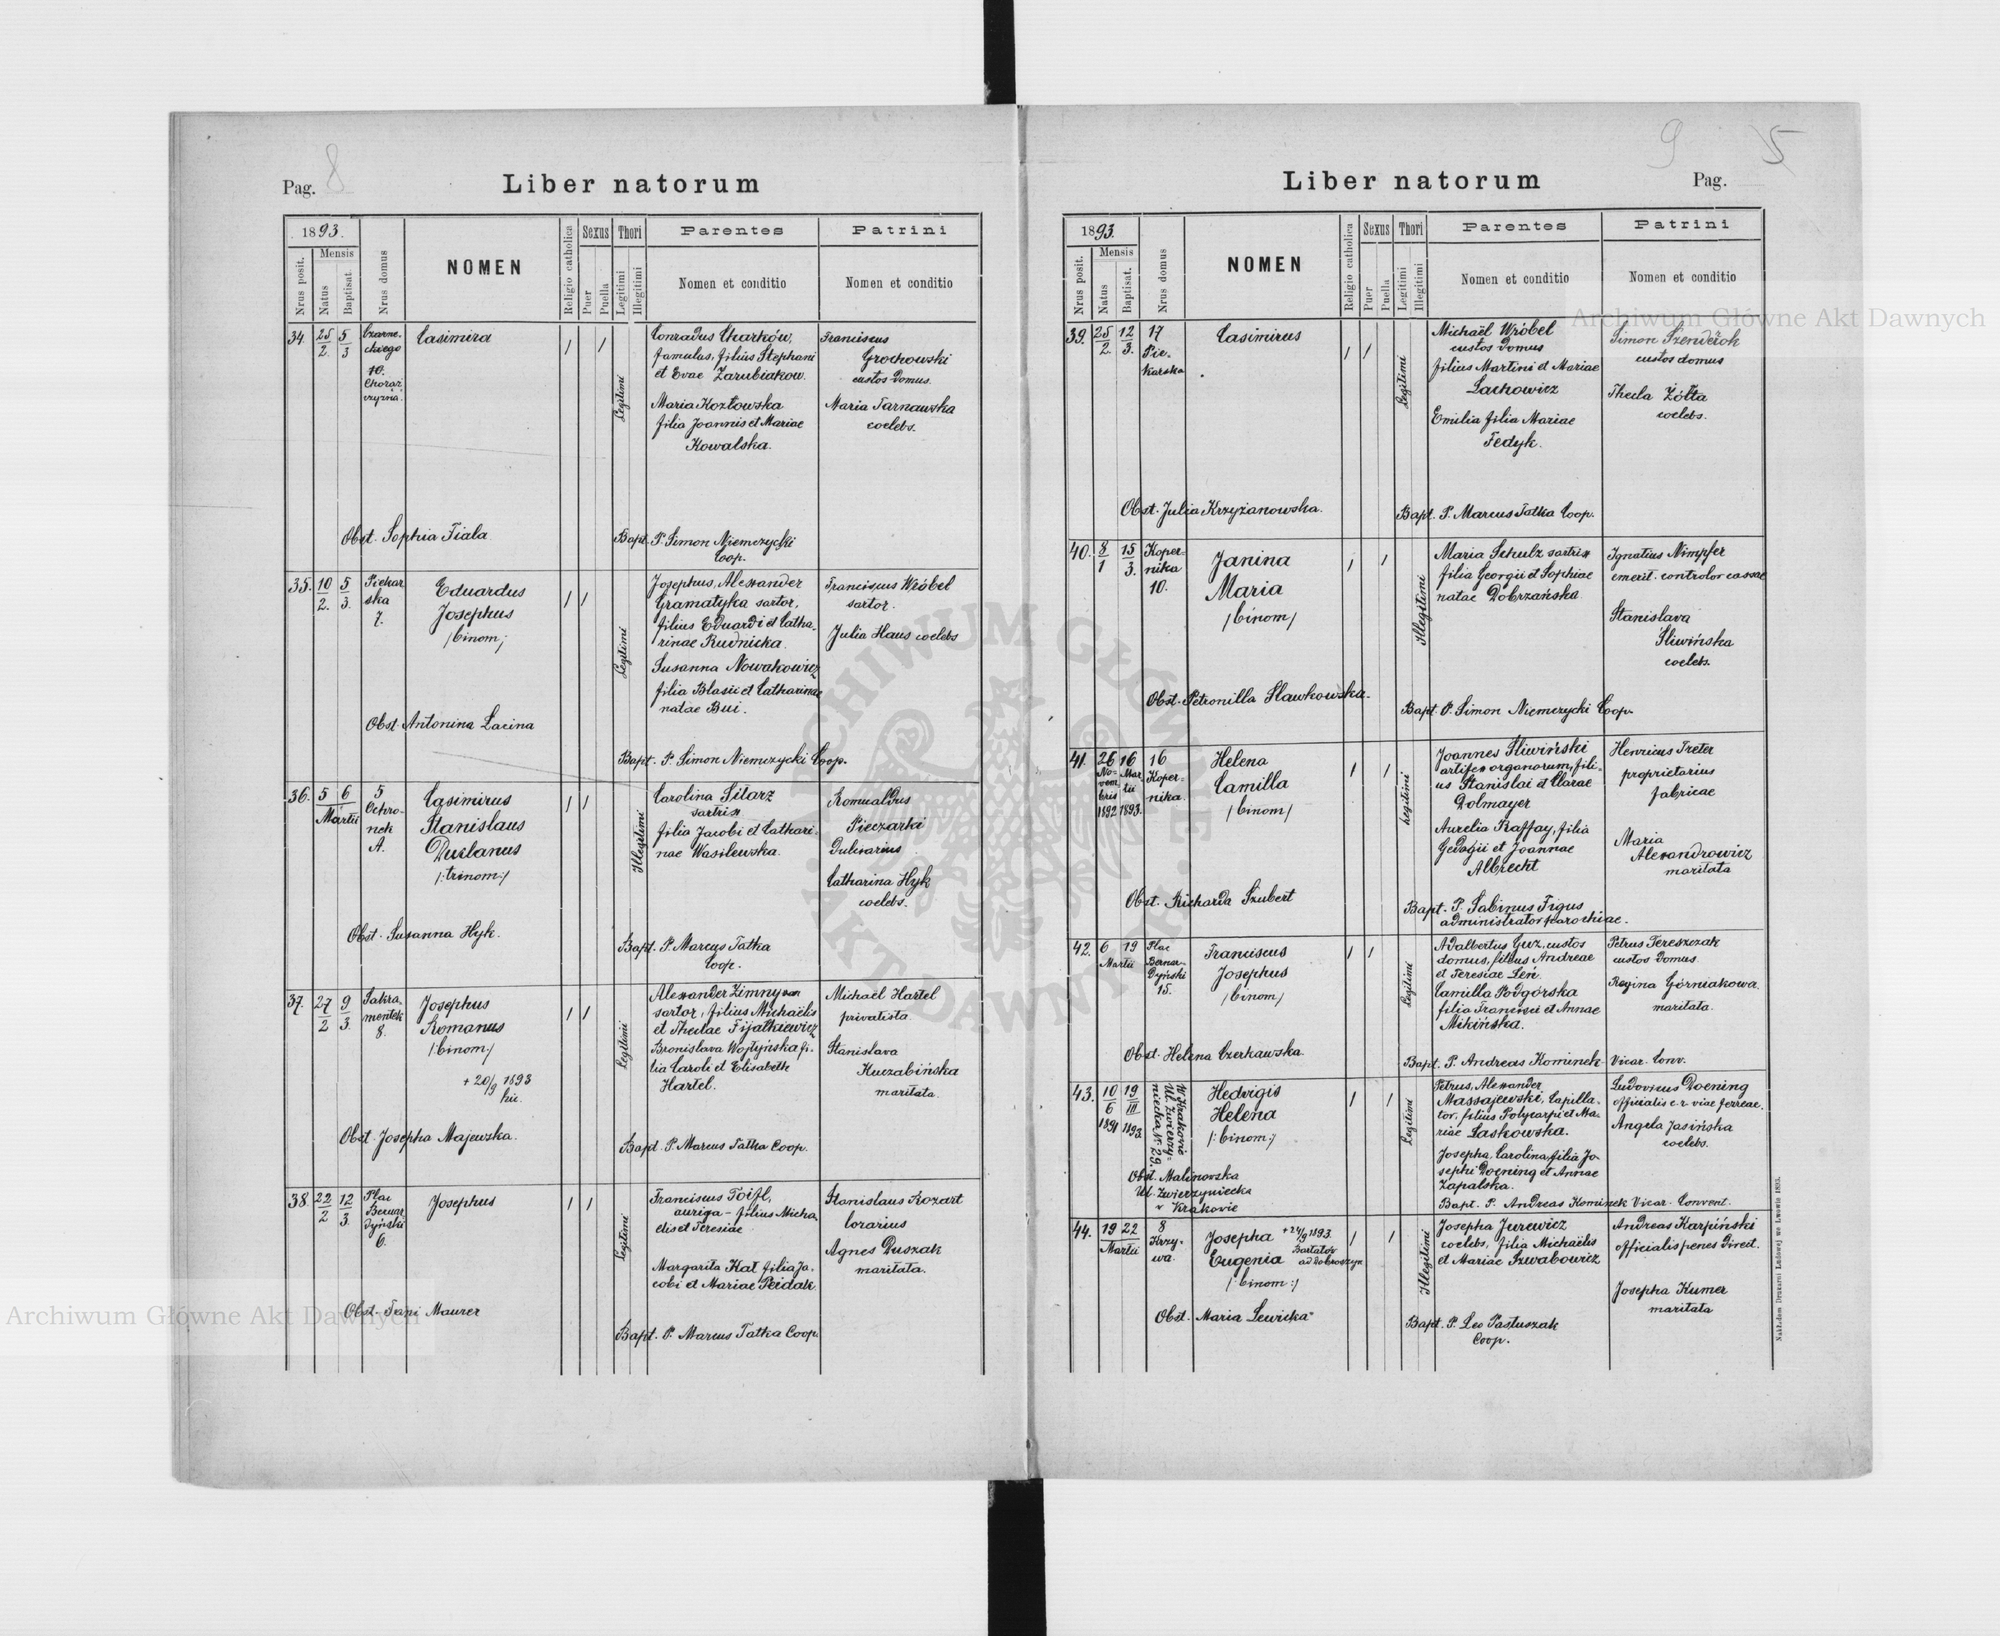 Pag. 8
Liber natorum
1893.
Nrus posit.
Mensis
Natus
Baptisat.
Nrus domus
NOMEN
Religio catholica
Sexus
Puer
Puella
Thori
Legitimi
Illegitimi
Parentes
Nomen et conditio
Patrini
Nomen et conditio
34.
25/2.
5/3
Czarne-
ckiego
10.
Chorąż
czyzna.
Casimira
Legitimi
Conradus Charków,
famulus, filius Stephani
et Evae Zarubiakow.
Maria Kozłowska
filia Joannis et Mariae
Kowalska.
Franciscus
Grochowski
custos domus.
Maria Tarnawska
coelebs.
Obst. Sophia Fiala
Bapt. P. Simon Niemczycki
Coop.
35.
10/2.
5/3.
Piekar
ska
7.
Eduardus
Josephus
/binom/
Legitimi
Josephus, Alexander
Gramatyka sartor,
filius Eduardi et Catha-
rinae Rudnicka.
Susanna Nowakowicz
filia Blasii et Catharinae
natae Bui.
Franciscus Wróbel
sartor.
Julia Haus coelebs
Obst. Antonina Lacina
Bapt. P. Simon Niemczycki Coop.
36.
5 6
Martii
5
Ochro-
nek
A.
Casimirus
Stanislaus
Duslanus
/:trinom:/
Illegitimi
Carolina Sitarz
sartrix
filia Jacobi et Cathari-
nae Wasilewska.
Romualdus
Pieczarki
Catharina Hyk
coelebs.
Obst. Susanna Hyk.
Bapt. P. Marcus Tatka
Coop.
37.
27/2
9/3.
Sakra-
mentek
8.
Josephus
Romanus
/:binom:/
+ 20/9 1893
hic.
Legitimi
Alexander Zimny
sartor, filius Michaëlis
et Theclae Fijałkiewicz
Bronislava Wojtyńska fi-
lia Caroli et Elisabeth
Hartel.
Michaël Hartel
privatista.
Stanislava
Kuczabińska
maritata.
Obst. Josepha Majewska.
Bapt. P. Marcus Tatka Coop.
38.
22/2
12/3.
Plac
Bernar
dyński
6.
Josephus
Legitimi
Franciscus Toifl,
auriga - filius Micha
elis et Teresiae
Margarita Kat filia Ja-
cobi et Mariae Peidak.
Stanislaus Kozart
lorarius
Agnes Duszak
maritata.
Obst. Maurer
Bapt. P. Marcus Tatka Coop.
9 5
Liber natorum
Pag.
1893.
Nrus posit.
Mensis
Natus
Baptisat.
Nrus domus
NOMEN
Religio catholica
Sexus
Puer
Puella
Thori
Legitimi
Illegitimi
Parentes
Nomen et conditio
Patrini
Nomen et conditio
39.
25/2.
12/3.
17
Pie-
karska
Casimirus
Legitimi
Michaël Wróbel
custos domus
filius Martini et Mariae
Lachowicz
Emilia filia Mariae
Fedyk.
Simon
custos domus
Thecla Żółta
coelebs.
Obst. Julia Krzyżanowska.
Bapt. P. Marcus Tatka Coop.
40.
8/1
15/3.
Koper-
nika
10.
Janina
Maria
/binom/
Illegitimi
Maria Schulz sartrix
filia Georgii et Sophiae
natae Dobrzańska
Ignatius Nimpfer
emerit. controlor cassae
Stanislava
Śliwińska
coelebs.
Obst. Petronilla Sławkowska.
Bapt. P. Simon Niemczycki Coop.
41.
26
No-
vem
bris
1892
16
Mar
tii
1893.
16
Koper-
nika.
Helena
Camilla
/binom/
Legitimi
Joannes Śliwiński
artifex organorum, fili-
us Stanislai et Clarae
Dolmayer
Aurelia Raffay, filia
et Joannae
Albrecht
Henricus Treter
proprietarius
fabricae
Maria
Alexandrowicz
maritata
Obst. Richarda Szubert
Bapt. P. Sabinus Figus
administrator parochiae.
42.
6 19
Martii
Plac
Bernar-
dyński
15.
Franciscus
Josephus
/binom/
Legitimi
Adalbertus Guz, custos
domus, filius Andreae
et Teresiae Leń.
Camilla Podgórska
filia Francisci et Annae
Mikińska.
Petrus Tereszczak
custos domus.
Regina Górniakowa.
maritata.
Obst. Helena Czerkawska.
Bapt. P. Andreas Kominek Vicar. Conv.
43.
10/6
1891
19/III
1893.
W Krakowie
Ul. Zwierzy-
niecka N: 29.
Hedvigis
Helena
/:binom:/
Legitimi
Petrus, Alexander
Massajewski, Capilla-
tor, filius Polycarpi et Ma-
riae Laskowska.
Josepha, Carolina, filia Jo-
sephi Doening et Annae
Zapalska.
Ludovicus Doening
officialis c. r. viae ferreae.
Angela Jasińska
coelebs.
Obst. Malinowska
Ul. Zwierzyniecka
w Krakowie
Bapt. P. Andreas Kominek Vicar. Convent.
44.
19 22
Martii
8
Krzy-
wa.
Josepha
Eugenia
/:binom:/
+ 24/9 1893.
Bartatów
ad Dobroszyn
Illegitimi
Josepha Jurewicz
coelebs, filia Michaëlis
et Mariae Szwabowicz
Andreas Karpiński
officialis penes Direct.
Josepha Kumer
maritata
Obst. Maria Lewicka
Bapt. P. Leo Pastuszak
Coop.
Nakładem Drukarni Ludowej we Lwowie 1893.
Archiwum Główne Akt Dawnych
Archiwum Główne Akt Dawnych
ARCHIWUM GŁÓWNE
AKT DAWNYCH